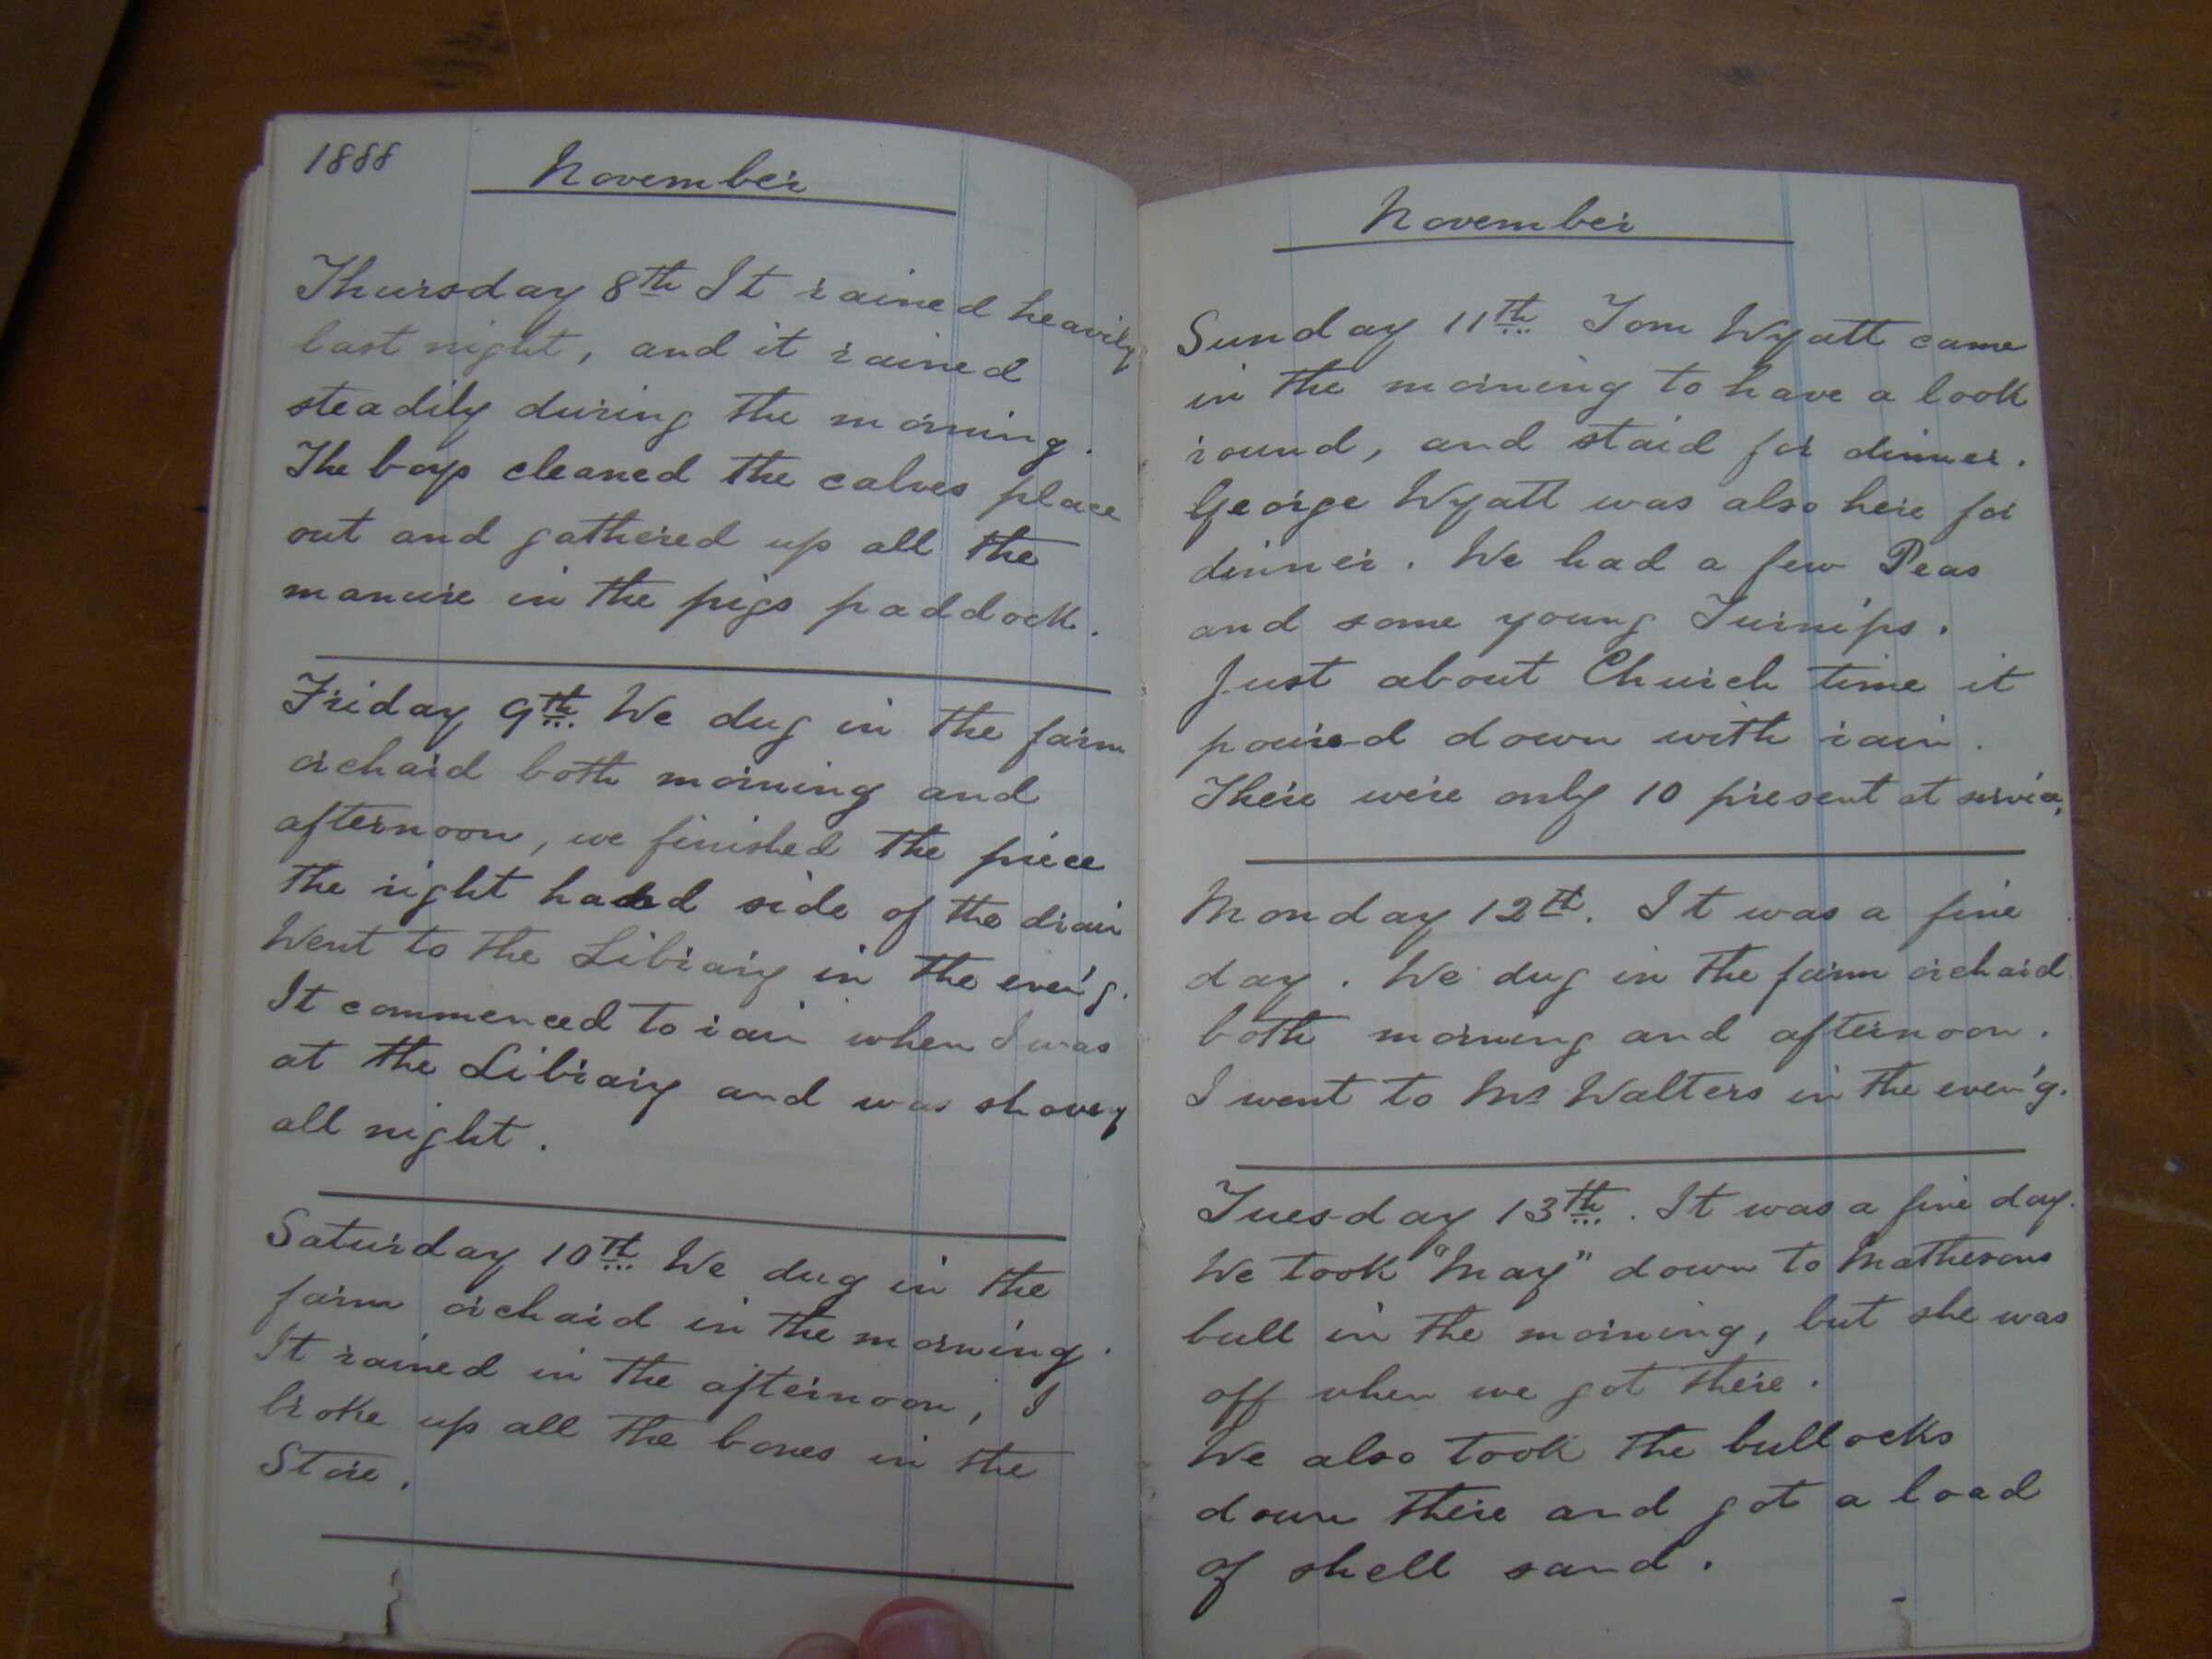 1888
November
Thursday 8th It rained heavily
last night, and it rained
steadily during the morning.
The boys cleaned the calves place
out and gathered up all the
manure in the pigs paddock.
Friday 9th We dug in the farm
orchard both morning and
afternoon, we finished the piece
the right hand side of the drain
Went to the Library in the even'g.
It commenced to rain when I was
at the Library and was showry
all night.
Saturday 10th We dug in the
farm orchard in the morning.
It rained in the afternoon, I
broke up all the bones in the
Store.
November
Sunday 11th Tom Wyatt came
in the morning to have a look
round, and staid for dinner.
George Wyatt was also here for
dinner. We had a few Peas
and some young Turnips.
Just about Church time it
poured down with rain.
There were only 10 present at service,
Monday 12th. It was a fine
day. We dug in the farm orchard
both morning and afternoon.
I went to Mr Walters in the even'g.
Tuesday 13th. It was a fine day.
We took "May" down to Mathesons
bull in the morning, but she was
off when we got there.
We also took the bullocks
down there and got a load
of shell sand.